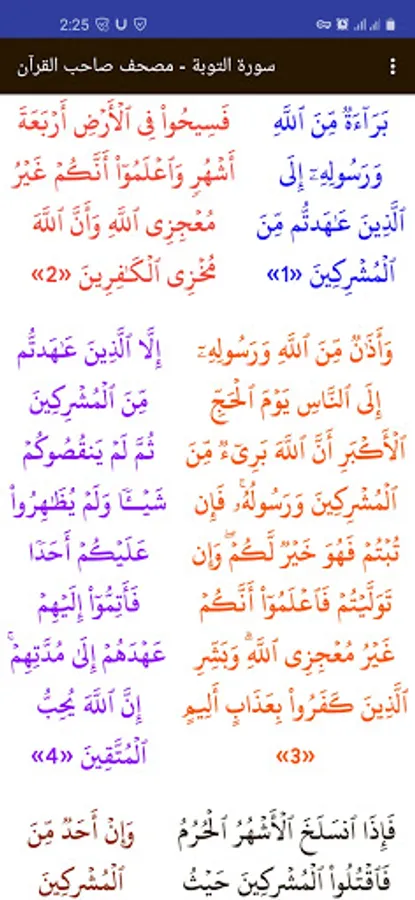 2:25
سورة التوبة - مصحف صاحب القرآن
بَرَآءَةٌ مِّنَ ٱللَّهِ
وَرَسُولِهِۦٓ إِلَى
ٱلَّذِينَ عَـٰهَدتُّم مِّنَ
ٱلْمُشْرِكِينَ «1»
فَسِيحُوا۟ فِى ٱلْأَرْضِ أَرْبَعَةَ
أَشْهُرٍ وَٱعْلَمُوٓا۟ أَنَّكُمْ غَيْرُ
مُعْجِزِى ٱللَّهِ وَأَنَّ ٱللَّهَ
مُخْزِى ٱلْكَـٰفِرِينَ «2»
وَأَذَٰنٌ مِّنَ ٱللَّهِ وَرَسُولِهِۦٓ
إِلَى ٱلنَّاسِ يَوْمَ ٱلْحَجِّ
ٱلْأَكْبَرِ أَنَّ ٱللَّهَ بَرِىٓءٌ مِّنَ
ٱلْمُشْرِكِينَ وَرَسُولُهُۥ ۚ فَإِن
تُبْتُمْ فَهُوَ خَيْرٌ لَّكُمْ ۖ وَإِن
تَوَلَّيْتُمْ فَٱعْلَمُوٓا۟ أَنَّكُمْ
غَيْرُ مُعْجِزِى ٱللَّهِ ۗ وَبَشِّرِ
ٱلَّذِينَ كَفَرُوا۟ بِعَذَابٍ أَلِيمٍ
«3»
إِلَّا ٱلَّذِينَ عَـٰهَدتُّم
مِّنَ ٱلْمُشْرِكِينَ
ثُمَّ لَمْ يَنقُصُوكُمْ
شَيْـًٔا وَلَمْ يُظَـٰهِرُوا۟
عَلَيْكُمْ أَحَدًا
فَأَتِمُّوٓا۟ إِلَيْهِمْ
عَهْدَهُمْ إِلَىٰ مُدَّتِهِمْ ۚ
إِنَّ ٱللَّهَ يُحِبُّ
ٱلْمُتَّقِينَ «4»
فَإِذَا ٱنسَلَخَ ٱلْأَشْهُرُ ٱلْحُرُمُ
فَٱقْتُلُوا۟ ٱلْمُشْرِكِينَ حَيْثُ
وَإِنْ أَحَدٌ مِّنَ
ٱلْمُشْرِكِينَ